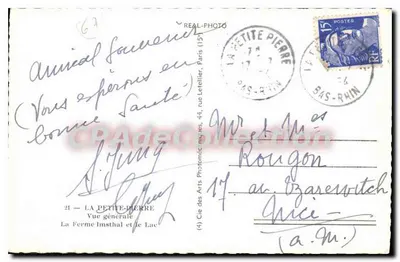 67
REAL-PHOTO
Amical Souvenir
(Vous espérons en
bonne Santé)
S. Jung
21 - LA PETITE-PIERRE
Vue générale
La Ferme Imsthal et le Lac
(4) Cie des Arts Photomécaniques, 44, rue Letellier, Paris (15e)
LA PETITE PIERRE
BAS-RHIN
BAS-RHIN
POSTES
15F
CPADeCollection
Mr et Mes
Rougon
17 av. Tzarewitch
Nice
(a. M.)